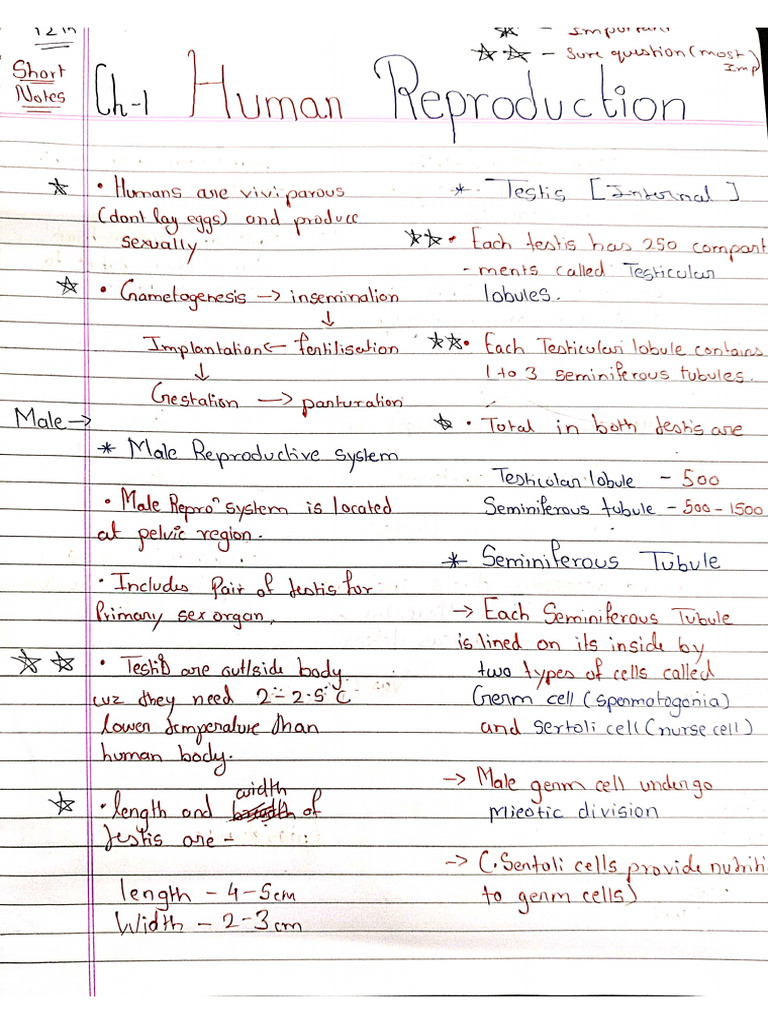 12th
☆ - Important
☆☆ - Sure question (most Imp)
Short
Notes
Ch-1 Human Reproduction
☆ • Humans are viviparous
(dont lay eggs) and produce
sexually
☆ • Gametogenesis → insemination
↓
Implantation ← fertilisation
↓
Gestation → parturation
Male →
* Male Reproductive system
• Male Repro" system is located
at pelvic region.
• Includes Pair of testis for
Primary sex organ,
☆☆ • Testis are outside body
cuz they need 2-2.5°C
lower temperature than
human body.
☆ • length and width of
testis are -
length - 4-5cm
Width - 2-3cm
* Testis [Internal]
☆☆ • Each testis has 250 compart
- ments called Testicular
lobules.
☆☆ • Each Testicular lobule contains
1 to 3 seminiferous tubules.
☆ • Total in both testis are
Testicular lobule - 500
Seminiferous tubule - 500-1500
* Seminiferous Tubule
→ Each Seminiferous Tubule
is lined on its inside by
two types of cells called
Germ cell (spermatogonia)
and sertoli cell (nurse cell)
→ Male germ cell undergo
Mieotic division
→ (. Sertoli cells provide nutriti
to germ cells)